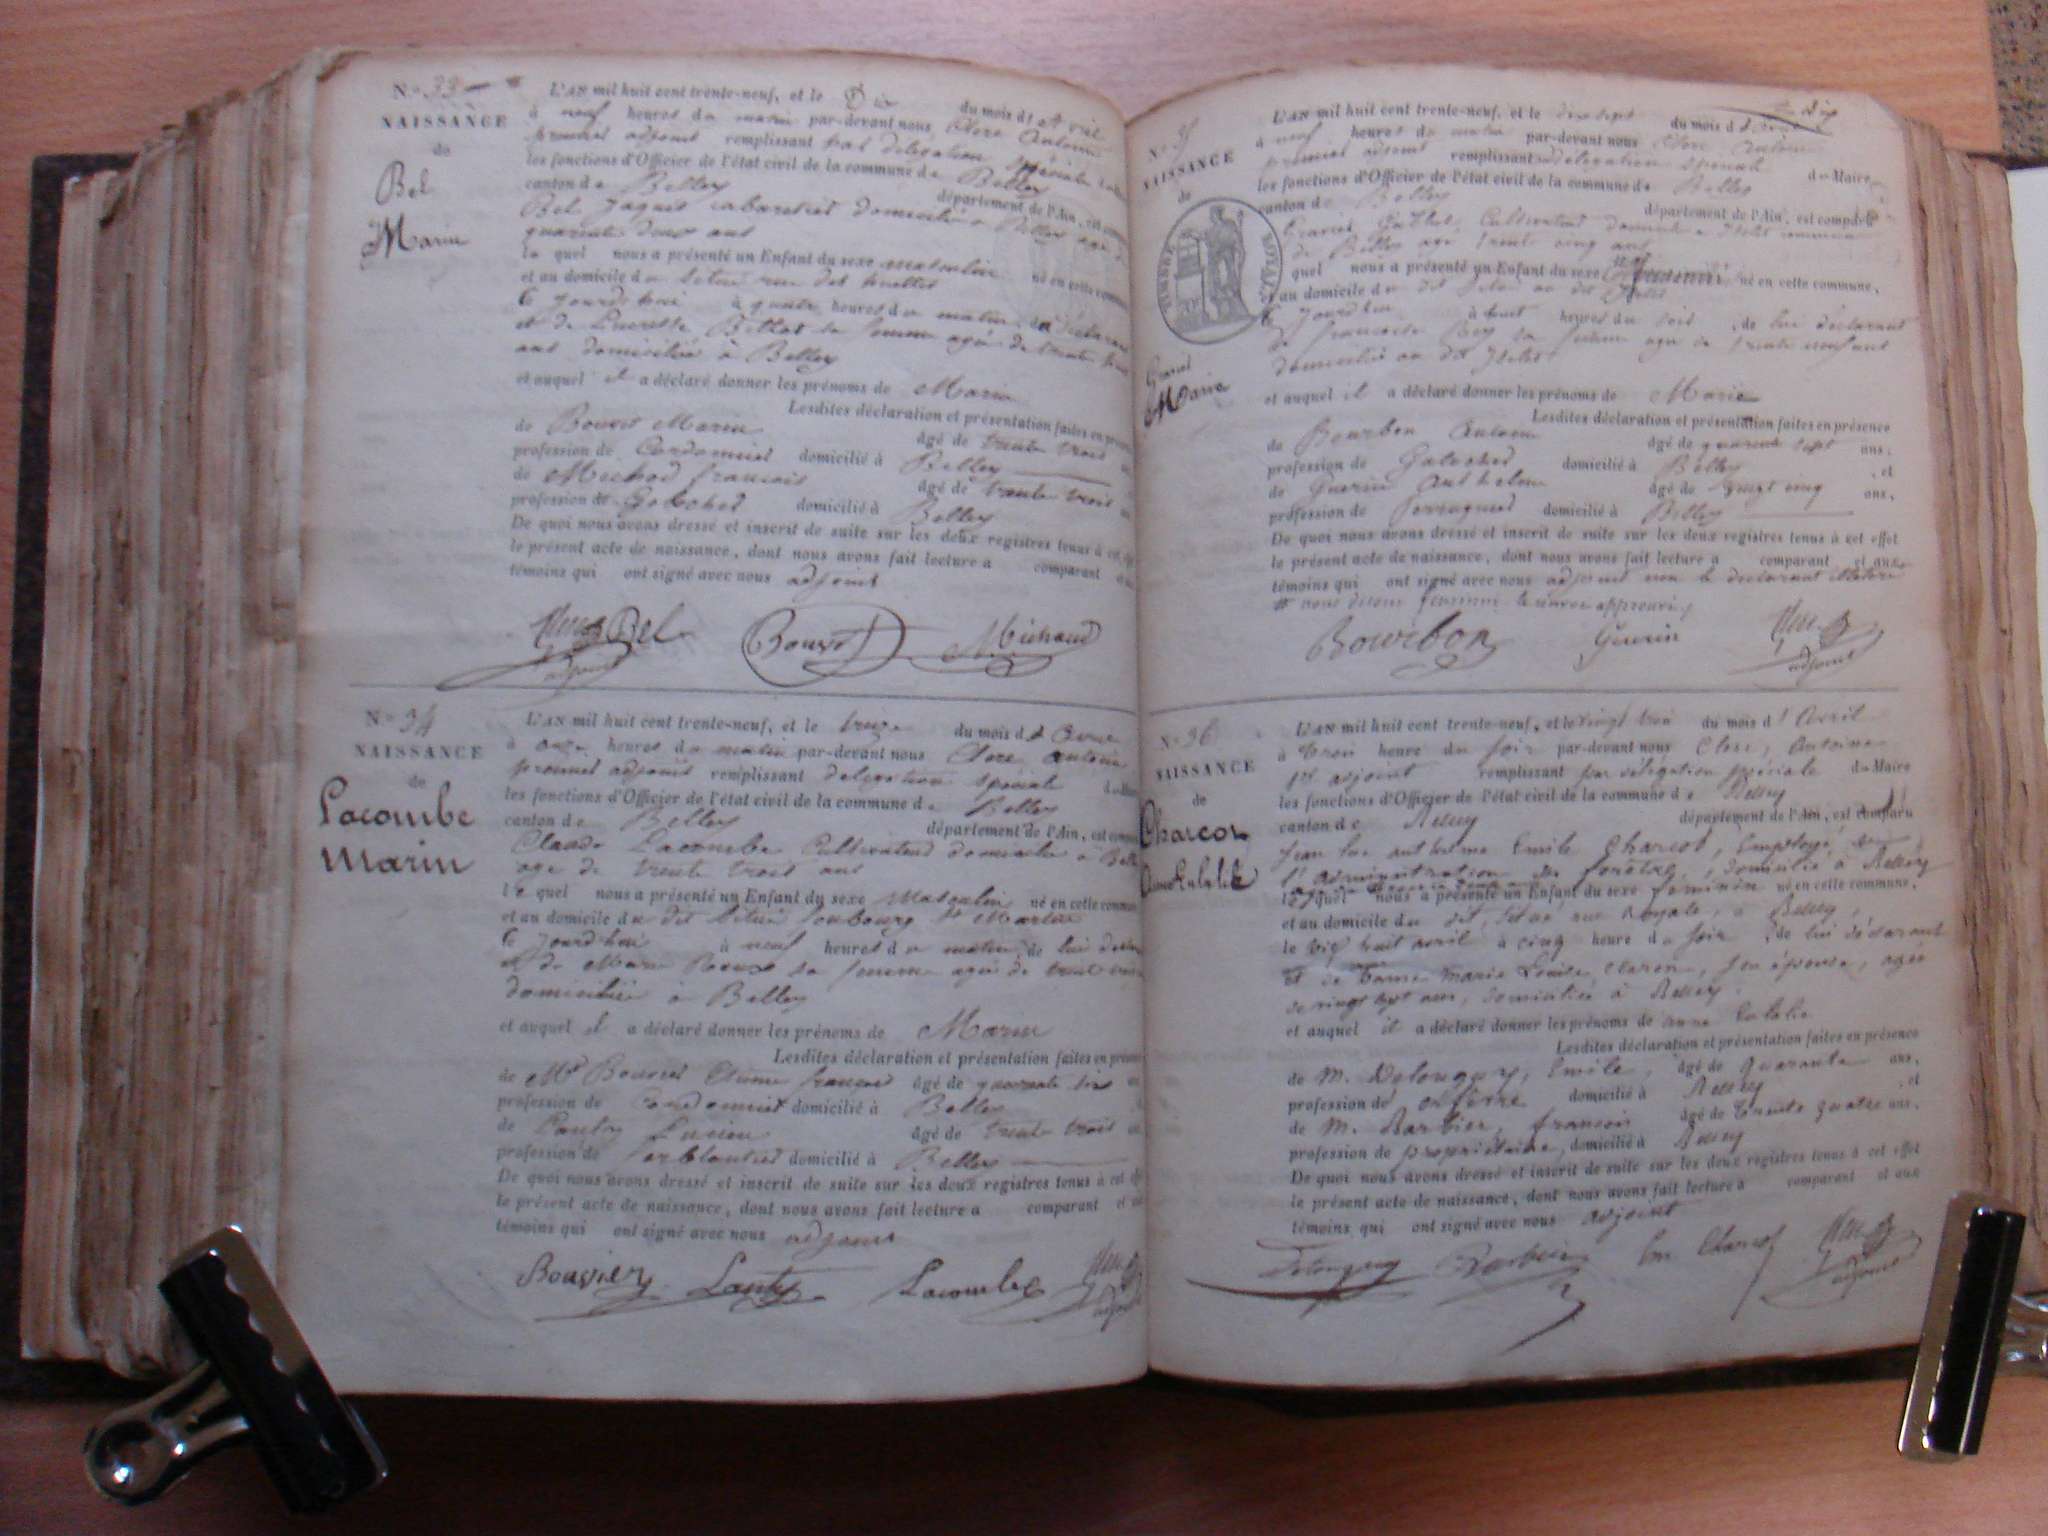 N° 33
NAISSANCE
de
Bel
Marin
L'AN mil huit cent trente-neuf, et le Dix du mois d'avril
à neuf heures du matin par-devant nous Clerc Antoine
premier adjoint remplissant par délégation spéciale
les fonctions d'Officier de l'état civil de la commune de Belley
canton de Belley département de l'Ain, est
Bel Jaques cabaretier domicilié a Belley agé
quarante deux ans
le quel nous a présenté un Enfant du sexe masculin né en cette commune
et au domicile du rue des
Ce jourd'hui à quatre heures du matin, de déclarant
et de Bethot sa femme agée de trente
ans domiciliée à Belley
et auquel il a déclaré donner les prénoms de Marin
Lesdites déclaration et présentation faites en
de Bouvet Marin âgé de trente trois
profession de Cordonnier domicilié à Belley
de Michod francois âgé de trente trois
profession de Galocher domicilié à Belley
De quoi nous avons dressé et inscrit de suite sur les deux registres tenus à cet
le présent acte de naissance, dont nous avons fait lecture a comparant et
témoins qui ont signé avec nous adjoint
Bel Bouvet Michaud
adjoint
N° 34
NAISSANCE
de
Lacombe
Marin
L'AN mil huit cent trente-neuf, et le treize du mois d'Avril
à onze heures du matin par-devant nous Clerc Antoine
premier adjoint remplissant délégation spéciale du Maire
les fonctions d'Officier de l'état civil de la commune de Belley
canton de Belley département de l'Ain, est
Claude Lacombe Cultivateur domicilié à Belley
age de trente trois ans
le quel nous a présenté un Enfant du sexe Masculin né en cette commune
et au domicile du dit situé foubourg St Martin
Ce jourd'hui à neuf heures du matin, de lui
et de Marie Roux sa femme agée de trente
domiciliée à Belley
et auquel il a déclaré donner les prénoms de Marin
Lesdites déclaration et présentation faites en
de Mr Bouvier Etienne francois âgé de quarante six
profession de Cordonnier domicilié à Belley
de Lucien âgé de trente trois
profession de ferblantier domicilié à Belley
De quoi nous avons dressé et inscrit de suite sur les deux registres tenus à cet
le présent acte de naissance, dont nous avons fait lecture a comparant et
témoins qui ont signé avec nous adjoint
Bouvier Lacombe
adjoint
dix
N° 35
NAISSANCE
de
TIMBRE ROYAL
Marie
L'AN mil huit cent trente-neuf, et le dix sept du mois d'avril
à neuf heures du matin par-devant nous Clerc Antoine
premier adjoint remplissant délégation spéciale du Maire
les fonctions d'Officier de l'état civil de la commune de Belley
canton de Belley département de l'Ain, est comparu
Cultivateur domicilié a commune
de Belley agé trente cinq ans
quel nous a présenté un Enfant du sexe né en cette commune,
et au domicile du dit
Ce jourd'hui à huit heures du soir, de lui déclarant
et francoise Rey sa femme agée de trente ans
domiciliée au dit
et auquel il a déclaré donner les prénoms de Marie
Lesdites déclaration et présentation faites en présence
de Bourbon Antoine âgé de quarante sept ans,
profession de Galocher domicilié à Belley, et
de Guerin Anthelme âgé de vingt cinq ans,
profession de domicilié à Belley
De quoi nous avons dressé et inscrit de suite sur les deux registres tenus à cet effet
le présent acte de naissance, dont nous avons fait lecture a comparant et aux
témoins qui ont signé avec nous adjoint non le déclarant
nous disons feminin approuvé
Bourbon Guerin
adjoint
N° 36
NAISSANCE
de
Charcot
L'AN mil huit cent trente-neuf, et le vingt trois du mois d'Avril
à trois heure du soir par-devant nous Clerc, Antoine
1er adjoint remplissant par délégation spéciale du Maire
les fonctions d'Officier de l'état civil de la commune de Belley
canton de Belley département de l'Ain, est comparu
Jean Luc Emile Charcot, Employé de
l'administration des forêts, domicilié à Belley
lequel nous a présenté un Enfant du sexe feminin né en cette commune,
et au domicile du dit, situé rue Royale, à Belley,
le dix huit avril à cinq heure du soir, de lui déclarant
et de Dame Marie Louise, son épouse, agée
de vingt sept ans, domiciliée à Belley
et auquel il a déclaré donner les prénoms de anne Eulalie
Lesdites déclaration et présentation faites en présence
de M. Emile, âgé de Quarante ans,
profession de orfèvre domicilié à Belley, et
de M. Barbier, francois âgé de trente quatre ans,
profession de propriétaire, domicilié à Belley
De quoi nous avons dressé et inscrit de suite sur les deux registres tenus à cet effet
le présent acte de naissance, dont nous avons fait lecture a comparant et aux
témoins qui ont signé avec nous adjoint
Barbier Em Charcot
adjoint